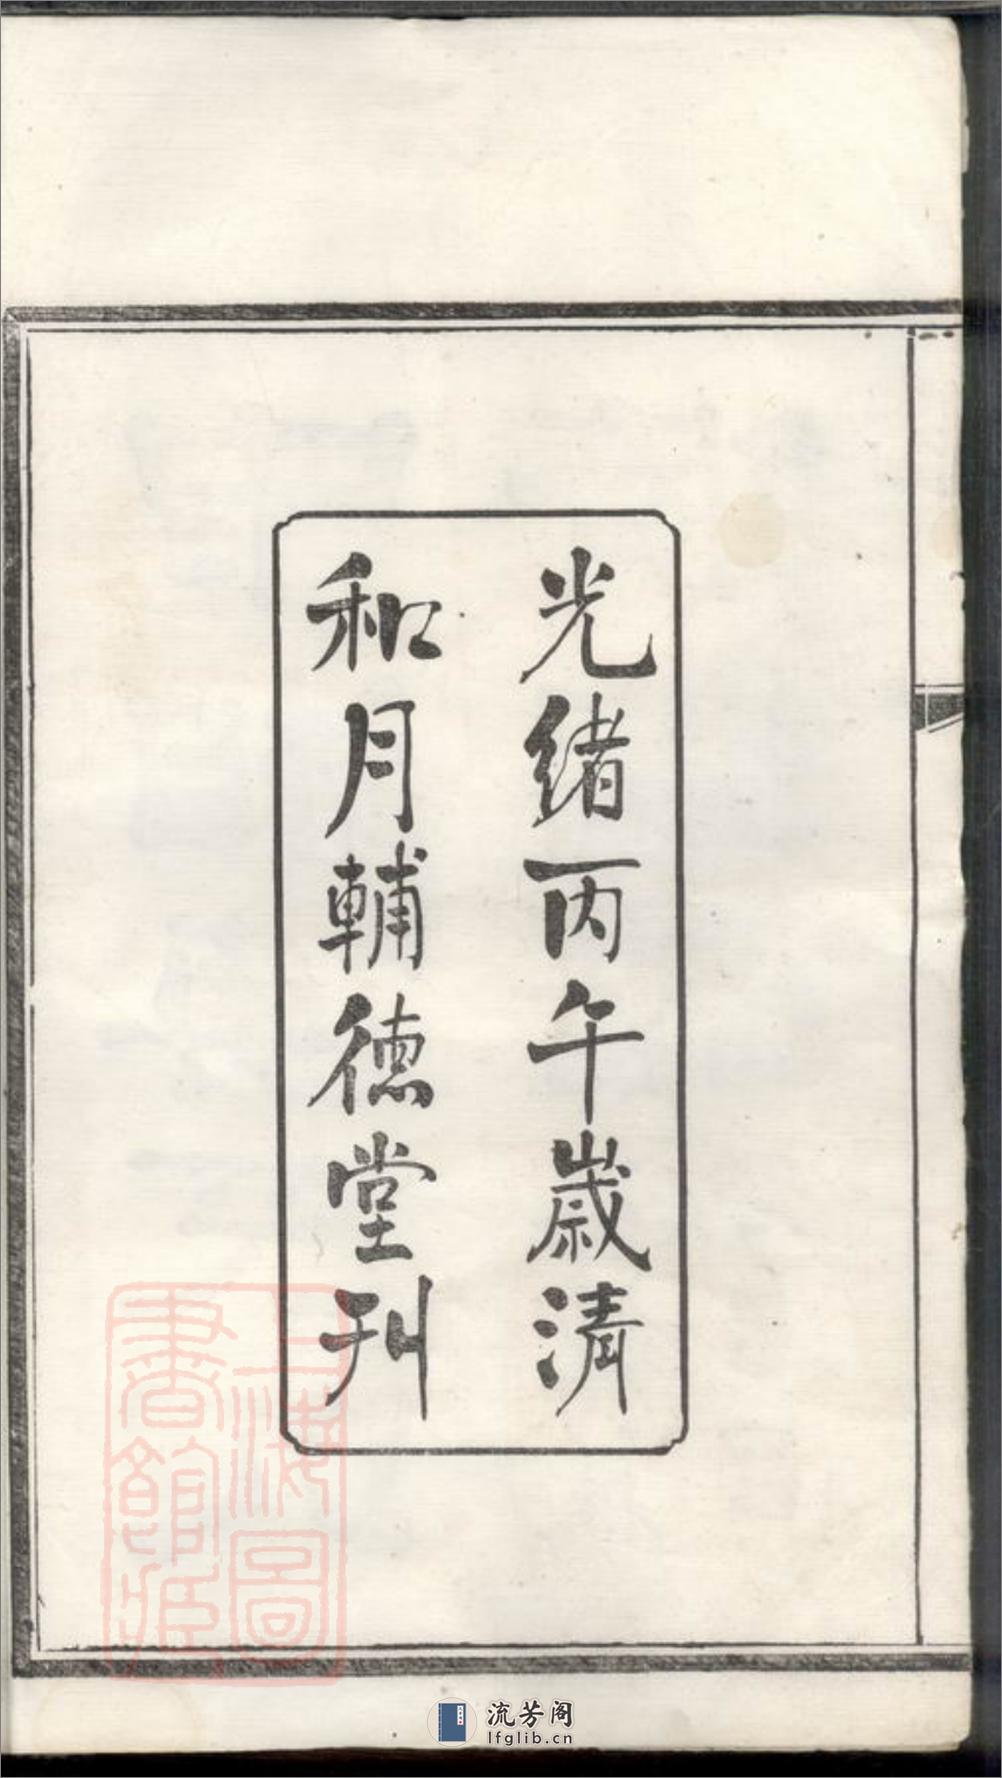 光緒丙午歲清
和月輔德堂刊
上海圖
書館藏
流芳阁
lfglib.cn